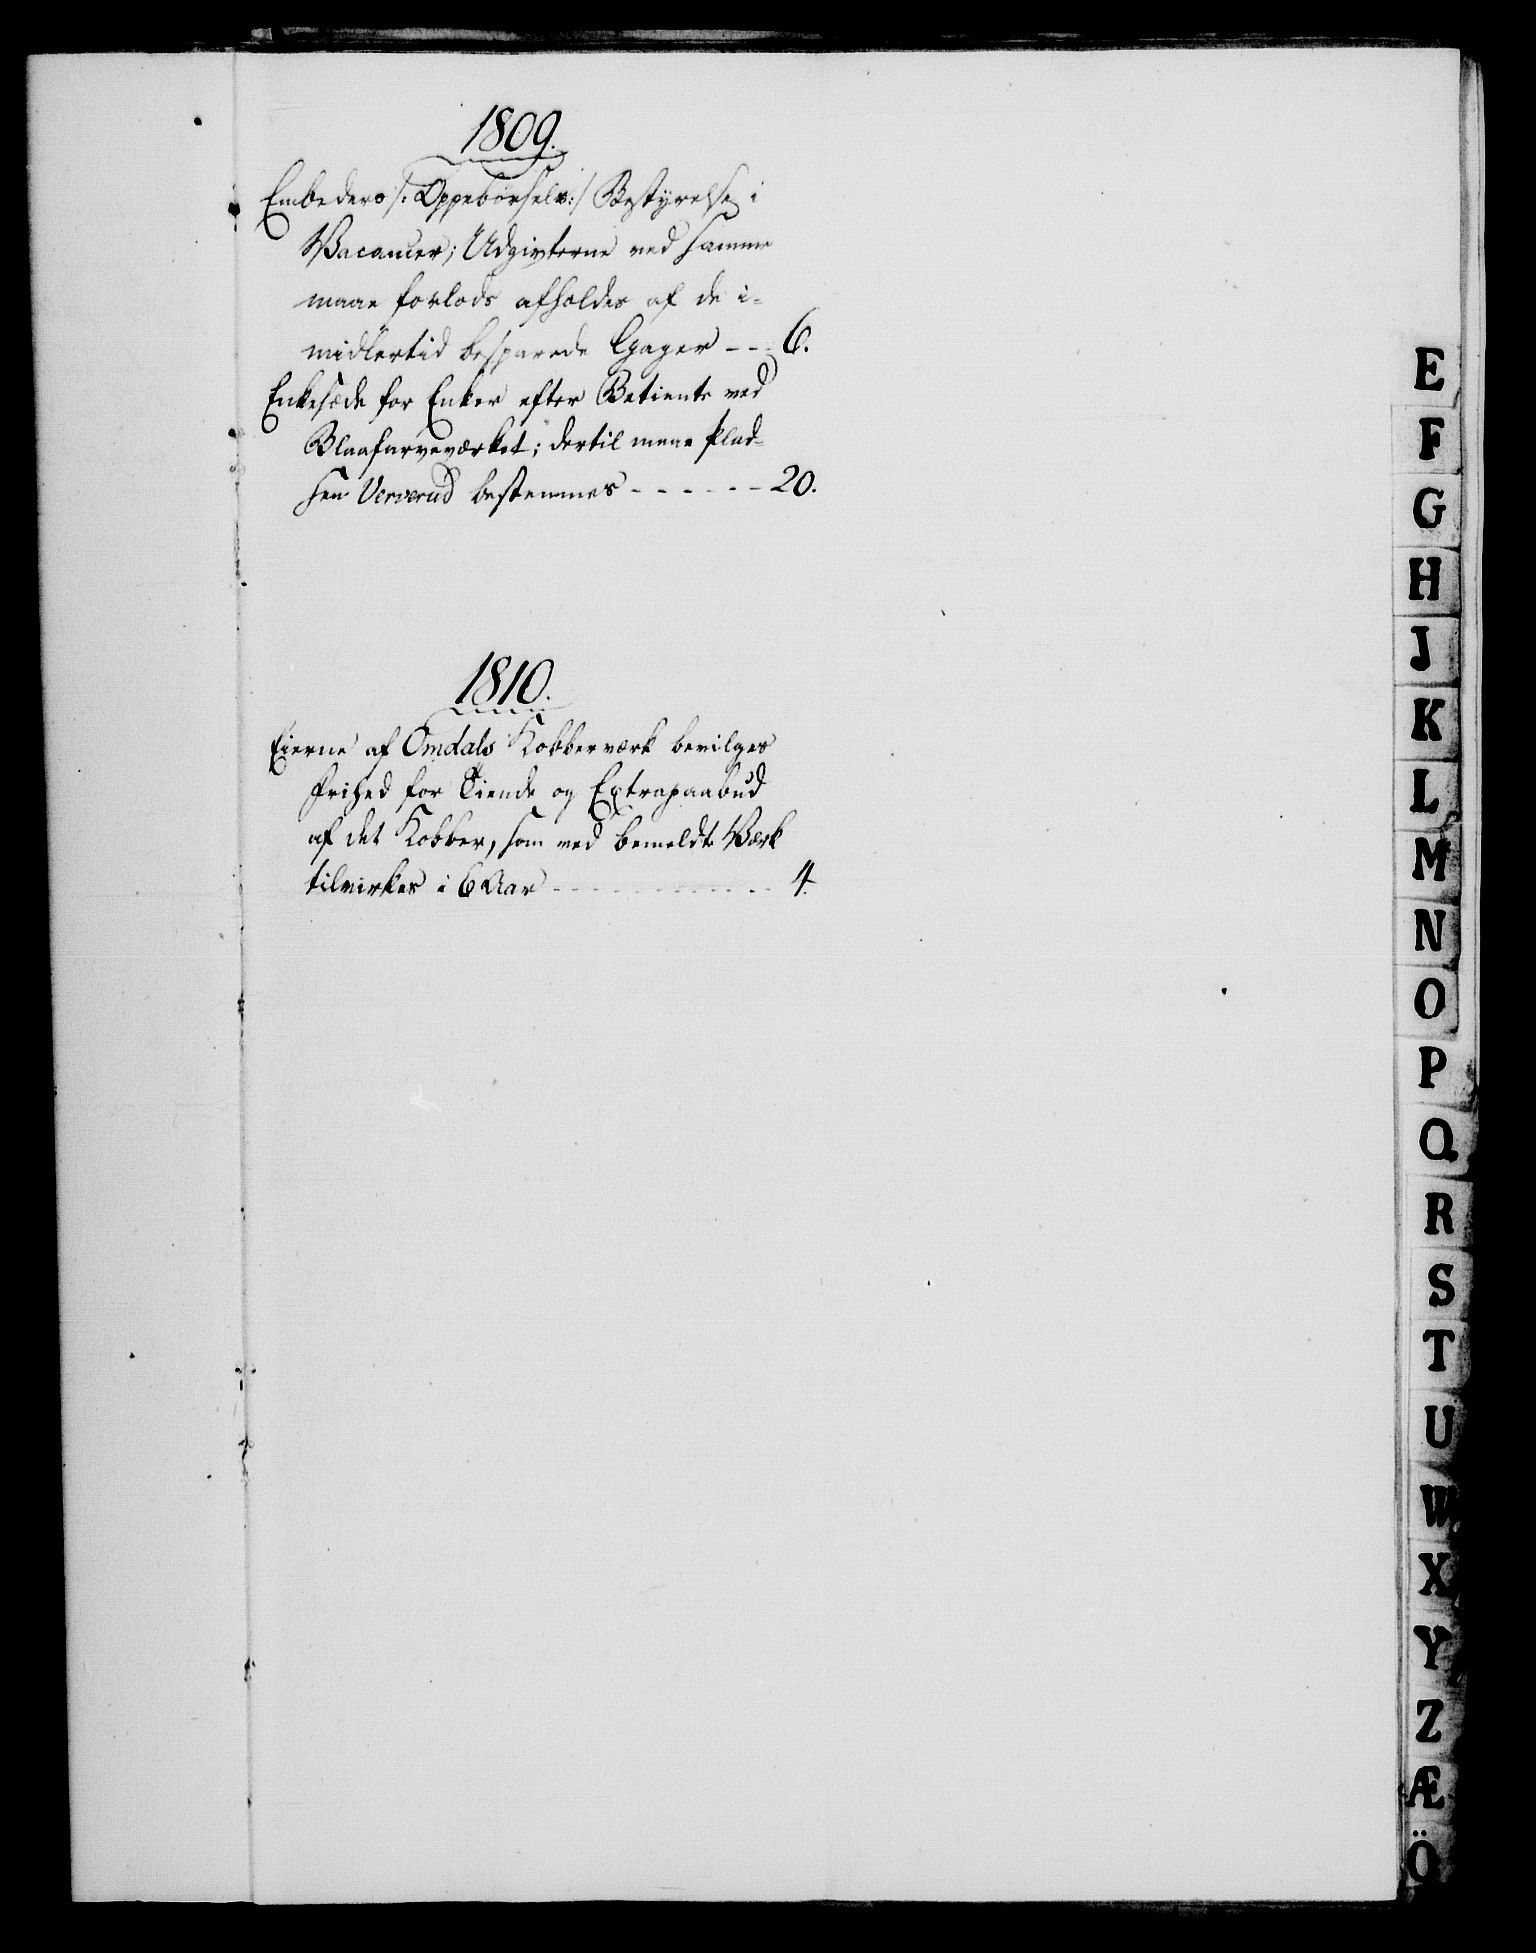 1809.
Embeders /: Oppebørsels :/ Bestyrelse i
Vacancer; Udgivterne ved samme
maae forlods afholdes af de i-
midlertid besparede Gager --- 6.
Enkesæde for Enker efter Betiente ved
Blaafarveværket; dertil maae Plad-
sen Ververud bestemmes ------ 20.
1810.
Eierne af Omdals Kobberværk bevilges
Frihed for Tiende og Extrapaabud
af det Kobber, som ved bemeldte Værk
tilvirkes i 6 Aar ------------ 4.
E
F
G
H
J
K
L
M
N
O
P
Q
R
S
T
U
W
X
Y
Z
Æ
Ö